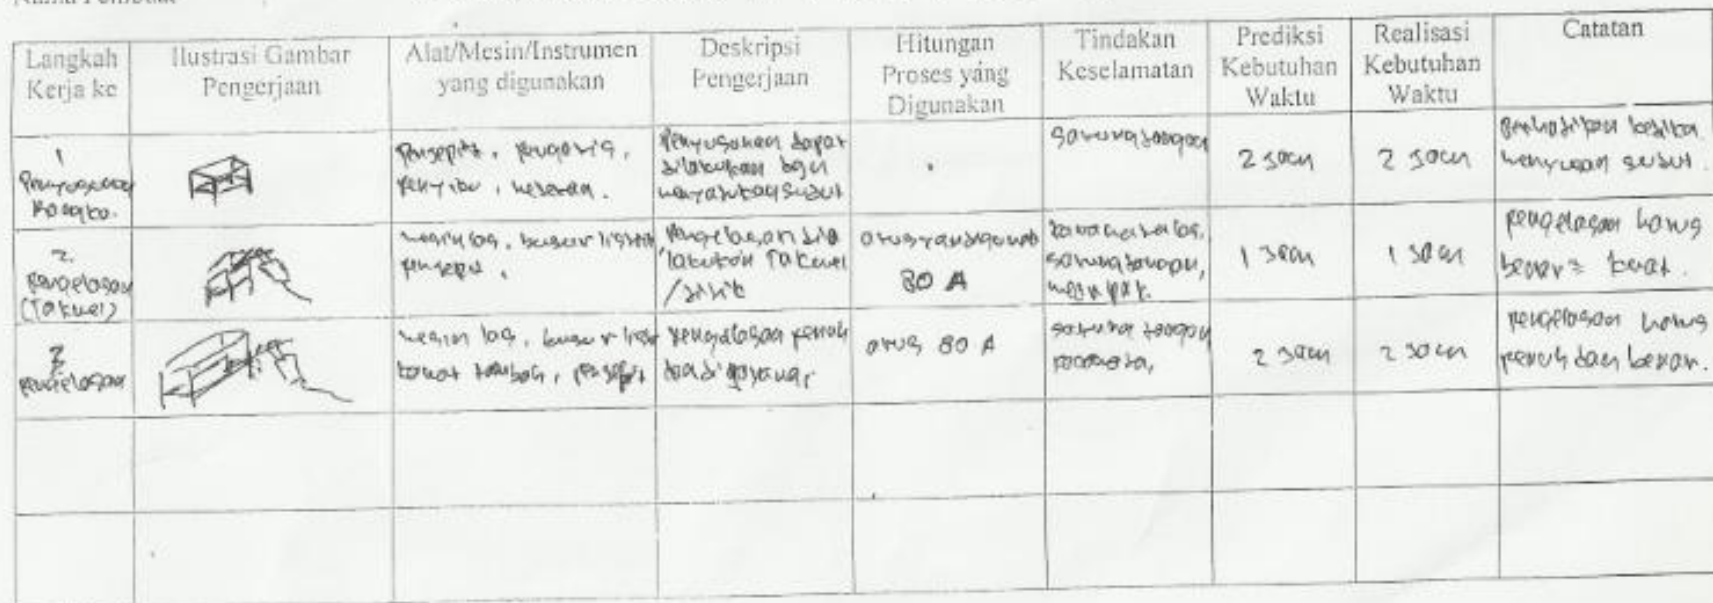 Langkah
Kerja ke
Ilustrasi Gambar
Pengerjaan
Alat/Mesin/Instrumen
yang digunakan
Deskripsi
Pengerjaan
Hitungan
Proses yang
Digunakan
Tindakan
Keselamatan
Prediksi
Kebutuhan
Waktu
Realisasi
Kebutuhan
Waktu
Catatan
1
Penyusunan
Rangka.
penggaris,
Penyusunan dapat
dilakukan dgn
menyatukan sudut
sarung tangan
2 Jam
2 Jam
Perhatikan ketika
menyusun sudut.
2.
Pengelasan
(Takwel)
mesin las, busur listrik
penjepit,
Pengelasan di
lakukan Takwel
80 A
sarung tangan,
1 Jam
1 Jam
pengelasan harus
benar² kuat.
3
pengelasan
mesin las, busur listrik
kawat tambah, penjepit
pengelasan penuh
arus 80 A
sarung tangan
kacamata,
2 Jam
2 Jam
pengelasan harus
penuh dan benar.